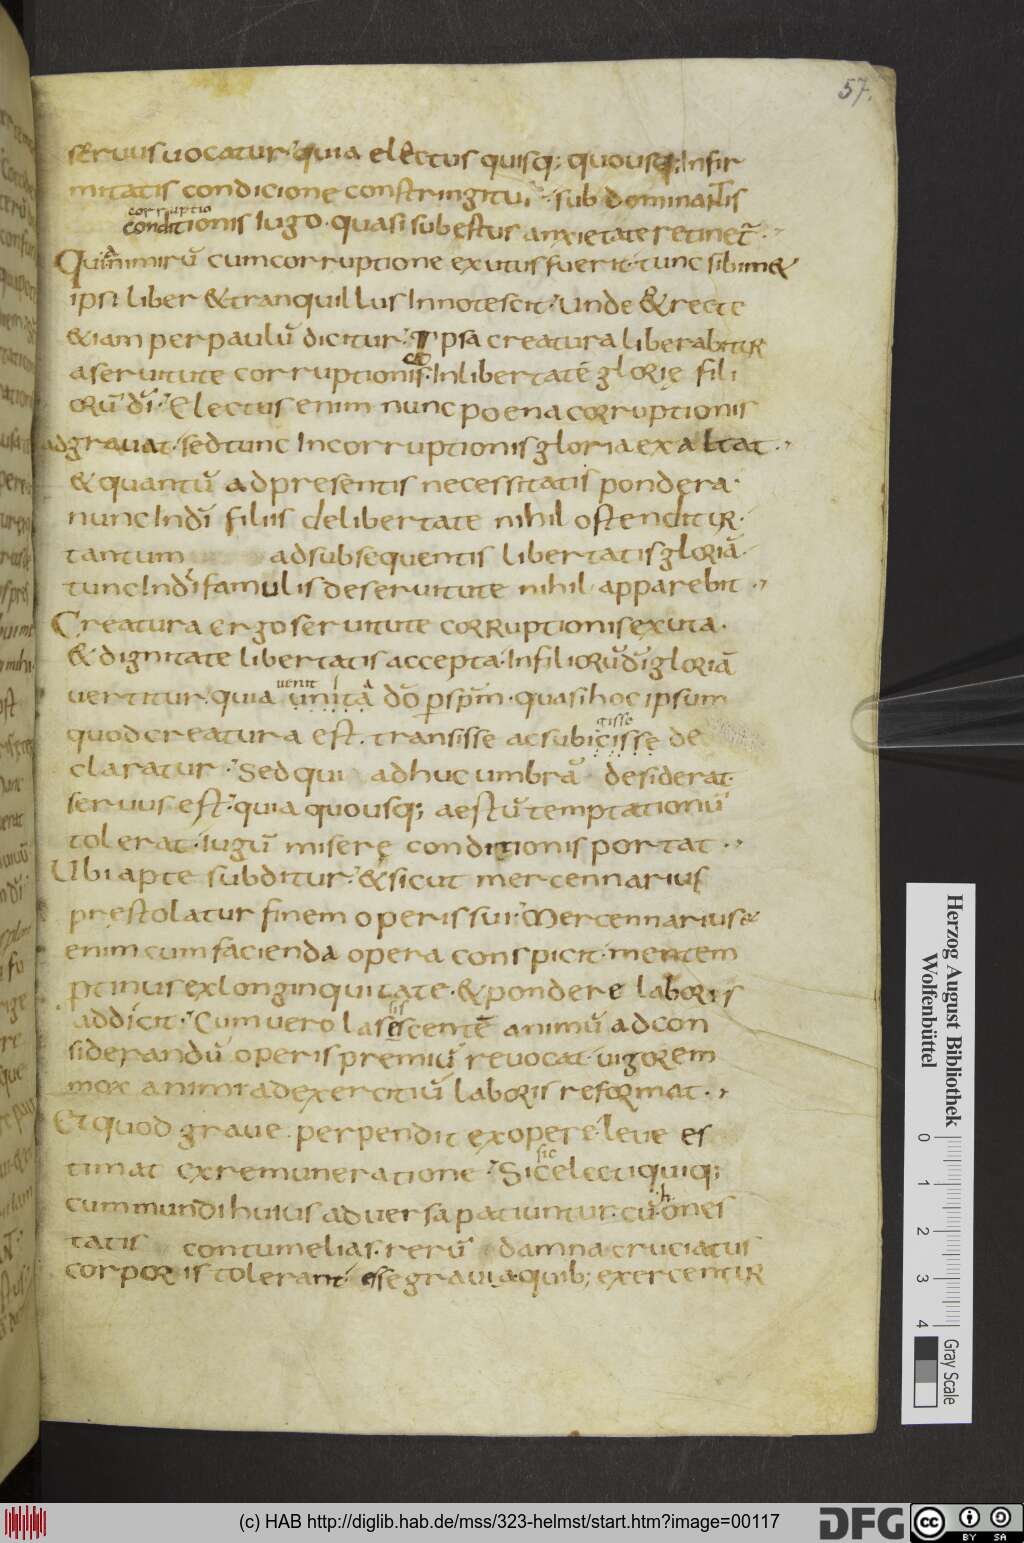 57.
seruus uocatur · quia electus quisq; quousq; Infir
mitatis condicione constringitur · sub dominantis
corruptio
conditionis Iugo · quasi subestus anxietate retinet̃ ·
Qui nimirū cum corruptione exutus fuerit · tunc sibim&
ipsi liber & tranquillus Innotescit · Unde & recte
&iam per paulū dicitur · Ipsa creatura liberabitur
a seruitute corruptionis · In libertatē glorię fili
orū dī · Electus enim nunc poena corruptionis
adgrauat · sed tunc Incorruptionis gloria exaltat ·
& quantū ad presentis necessitatis pondera ·
nunc In dī filiis de libertate nihil ostenditur ·
tantum ad subsequentis libertatis gloriā ·
tunc In dī famulis de seruitute nihil apparebit ·
Creatura ergo seruitute corruptionis exuta ·
& dignitate libertatis accepta · In filiorū dī gloriā
uertitur · quia unita dō p spm̄ · quasi hoc ipsum
uenit
quod creatura est · transisse ac subicisse de
gisse
claratur · Sed qui adhuc umbrā desiderat ·
seruus est · quia quousq; aestū temptationū
tolerat · iugū miserę conditionis portat ·
Ubi apte subditur · & sicut mercennarius
prestolatur finem operis sui · Mercennarius &
enim cum facienda opera conspicit · mentem
ptinus ex longinquitate · & pondere laboris
addicit · Cum uero lasescentē animū ad con
siderandū operis premiū reuocat · uigorem
mox animi ad exercitiū laboris reformat ·
Et quod graue perpendit ex opere · leue es
timat ex remuneratione · Sic electi quiq;
sic
cum mundi huius aduersa patiuntur · cū hones
tatis contumelias · rerū damna cruciatus
corporis tolerant · esse grauia quib; exercentur
Herzog August Bibliothek
Wolfenbüttel
0 1 2 3 4
Gray Scale
(c) HAB http://diglib.hab.de/mss/323-helmst/start.htm?image=00117
DFG
cc BY SA